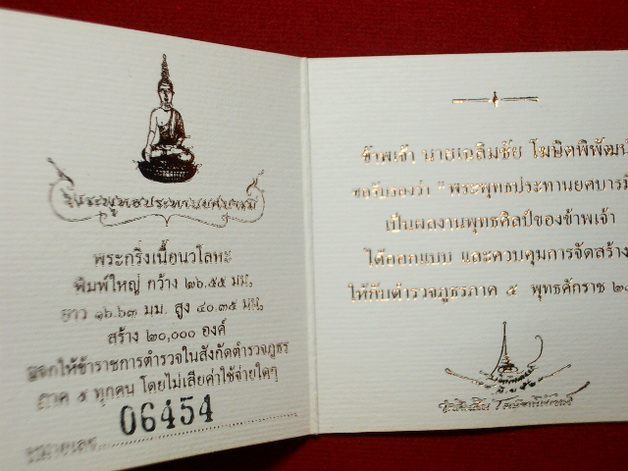 พระพุทธประทานยศบารมี
พระกริ่งเนื้อนวโลหะ
พิมพ์ใหญ่ กว้าง ๒๖.๕๕ มม.
ยาว ๑๖.๖๓ มม. สูง ๔๐.๓๕ มม.
สร้าง ๒๐,๐๐๐ องค์
แจกให้ข้าราชการตำรวจในสังกัดตำรวจภูธร
ภาค ๕ ทุกคน โดยไม่เสียค่าใช้จ่ายใดๆ
หมายเลข 06454
ข้าพเจ้า นายเฉลิมชัย โฆษิตพิพัฒน์
ขอรับรองว่า " พระพุทธประทานยศบารมี
เป็นผลงานพุทธศิลป์ของข้าพเจ้า
ได้ออกแบบ และควบคุมการจัดสร้าง
ให้กับตำรวจภูธรภาค ๕ พุทธศักราช